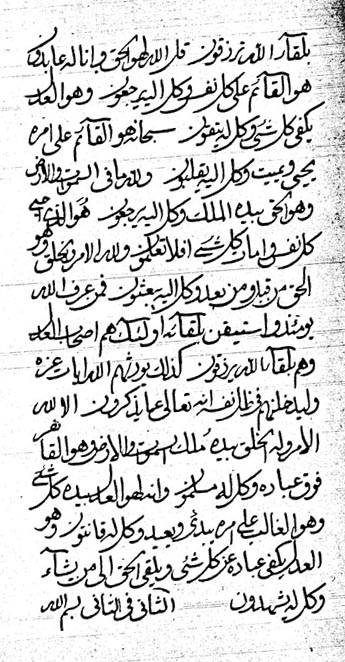 بلقآء الله ترزقون قل الله لهو الحق وانا له عابدون
هو القآئم على كل نفس وكل اليه يرجعون وهو العدل
يكفى كل شئ وكل له يتقون سبحانه هو القآئم على امره
يحيى ويميت وكل اليه يقلبون ولله ما فى السموت والارض
وهو الحق بيده الملك وكل اليه يرجعون هو الذى
كل نفس كل شئ افلا تعلمون ولله الامر والخلق وهو
الحق من قبل ومن بعد وكل اليه يبعثون فمن عرف الله
يومئذ واستيقن بلقآئه اولئك هم اصحاب العدل
وهم بلقآء الله يرزقون كذلك يورثهم الله ايات عزه
وليدخلنهم فى ظل انه تعالى عما يذكرون الا لله
الامر وله الخلق بيده ملك السموت والارض وهو القاهر
فوق عباده وكل له مسلمون وانه لهو العدل بيده كل شئ
وهو الغالب على امره يبدئ ويعيد وكل له قانتون وهو
العدل يكفى عباده عن كل شئ ويلقى الحق الى من يشآء
وكل له يشهدون الثانى فى الثانى بسم الله